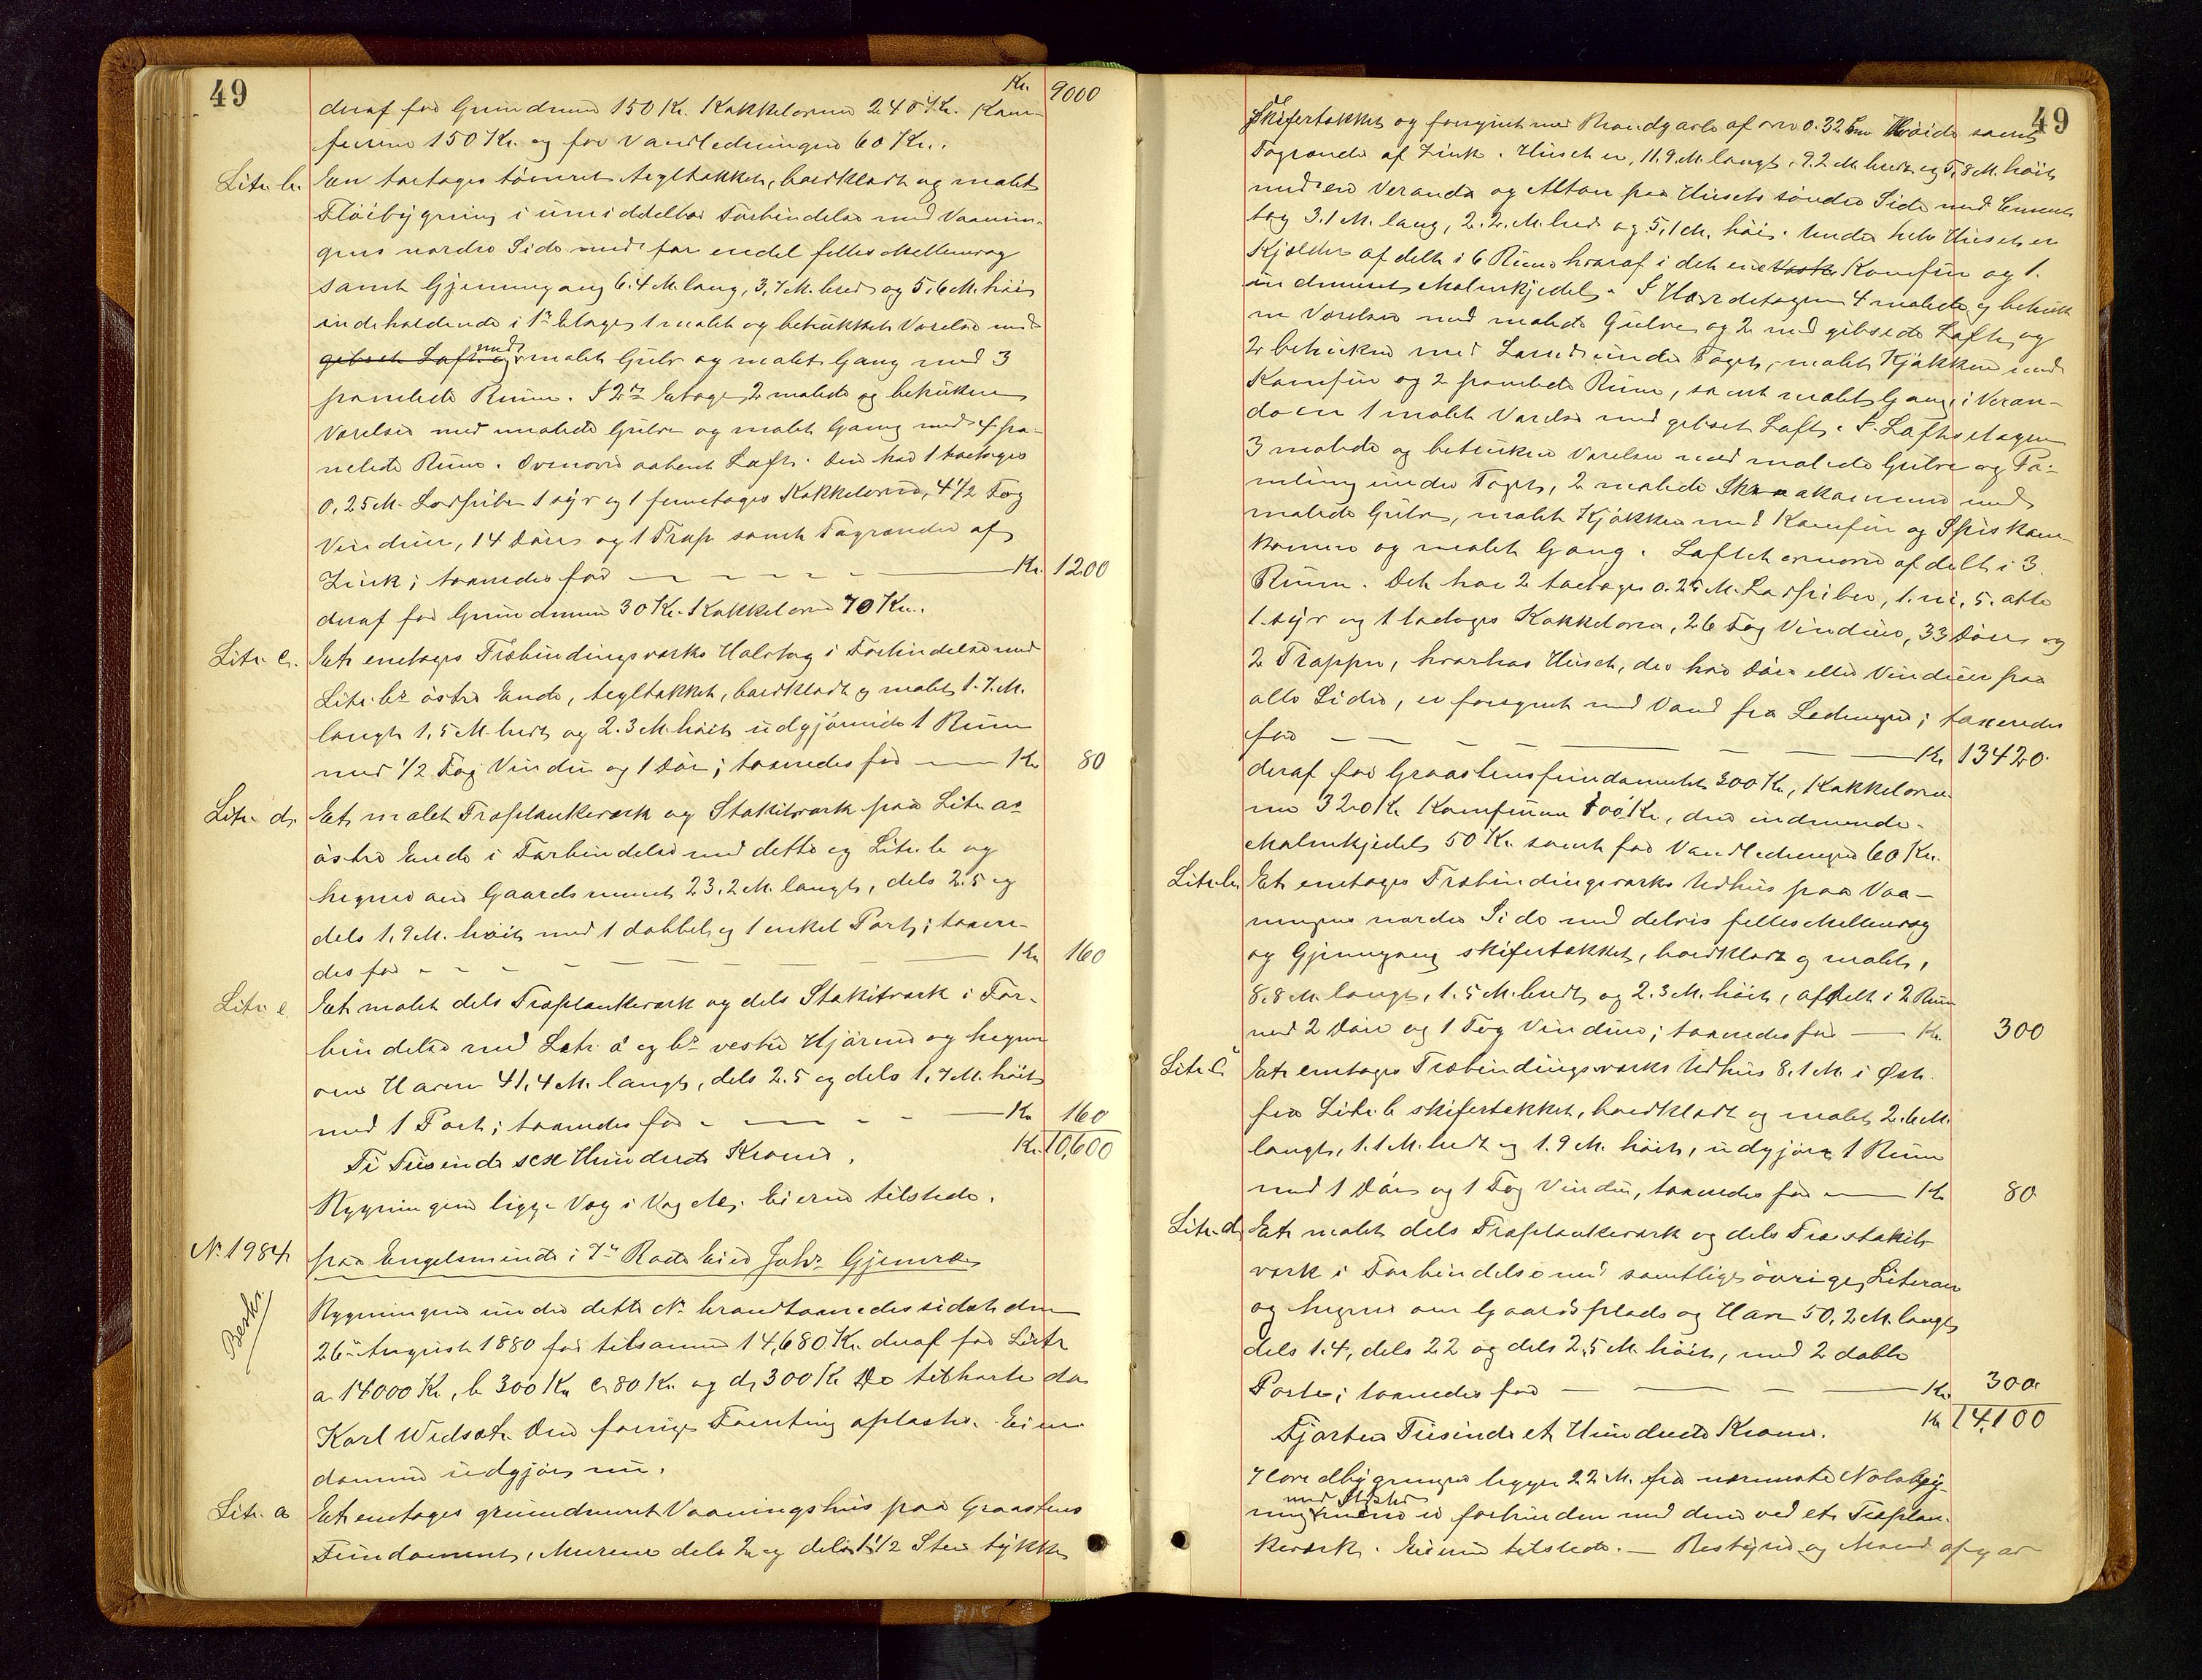 49
Kr. 9000
deraf for Grundmur 150 Kr. Kakkelovne 240 Kr. Kom-
furene 150 Kr. og for Vandledningen 60 Kr.
Litr. b. En toetages tømret tegltækket, bordklædt og malet
Fløibygning i umiddelbar Forbindelse med Vaanin-
gens nordre Side med for endel fælles Mellemvæg
samt Gjennemgang 6.4 M. lang, 3,7 M. bred og 5,6 M. høi
indeholdende i 1ste Etage 1 malet og betrukket Værelse med
gibset Loft og med malet Gulv og malet Gang med 3
panelede Rum. I 2den Etage 2 malede og betrukne
Værelser med malede Gulve og malet Gang med 4 pa-
nelede Rum. Ovenover aabent Loft. Den har 1 toetages
0,25 M. Lodpibe 1 syv og 1 femetages Kakkelovne, 4 1/2 Fag
Vinduer, 14 Døre og 1 Trap samt Tagrender af
Zink; taxeredes for Kr. 1200
deraf for Grundmur 30 Kr. Kakkelovne 70 Kr.
Litr. c. Et enetages Træbindingsværks Halvtag i Forbindelse med
Litr. bs østre Ende, tegltækket, bordklædt og malet 1.7 M.
langt 1,5 M. bredt og 2.3 M. høit udgjørende 1 Rum
med 1/2 Fag Vindu og 1 Dør; taxeredes for Kr 80
Litr. d. Et malet Træplankeværk og Stakitværk paa Litr. as
østre Ende i Forbindelse med dette og Litr. b og
hegner om Gaardsrummet 23.2 M. langt, dels 2.5 og
dels 1,9 M. høit med 1 dobbel og 1 enkel Port; taxere-
des for Kr 160
Litr. e. Et malet dels Træplankeværk og dels Stakitværk i For-
bindelse med Litr. a og bs vestre Hjørne og hegner
om Haven 41,4 M. langt, dels 2.5 og dels 1,7 M. høit
med 1 Port; taxeredes for Kr 160
Ti Tusinde sex Hundrede Kroner. Kr. 10,600
Bygningen ligger Væg i Væg Eieren tilstede.
No. 1984 paa Engelsminde i 7de Rode Eier Johs. Gjemre
Beskr.
Bygningerne under dette No. brandtaxeredes sidst den
26de August 1880 for tilsammen 14,680 Kr. deraf for Litr
a 14000 Kr, b 300 Kr c 80 Kr. og d 300 Kr De tilhørte da
Karl Widsæt. Den forrige Forretning oplæstes. Eien-
dommene udgjør nu.
Litr. a Et enetages grundmuret Vaaningshus paa Graastens
Fundament, Murene dels 2 og dels 1 1/2 Sten tykke
49
Skifertækket og forsynet med Brandgavle af over 0.32 m Høide samt
Tagrender af Zink. Huset er, 11.9 M. langt, 9.2 M. bredt og 5,8 M. høit
med en Veranda og Altan paa Husets søndre Side med Cement
tag 3.1 M. lang, 2.2. M. bred og 5,1 M. høi. Under hele Huset er
Kjælder afdelt i 6 Rum hvoraf i det ene Komfur og 1.
indmuret Malmkjedel. I Hovedetagen 4 malede og betrukk
ne Værelser med malede Gulve og 2 med gibsede Lofte og
2 betrukne med Lærred under Taget, malet Kjøkken med
Komfur og 2 panelede Rum, samt malet Gang; i Veran-
daen 1 malet Værelse med gibset Loft. I Loftsetagen
3 malede og betrukne Værelser med malede Gulve og Pa-
neling under Taget, 2 malede Skraakammere med
malede Gulve, malet Kjøkken med Komfur og Spiskam-
kammer og malet Gang. Loftet ovenover afdelt i 3
Rum. Det har 2 toetages 0.25 M. Lodpiber, 1. ni, 5. otte
1. syv og 1 toetages Kakkelovn, 26 Fag Vinduer, 33 Døre og
2 Trapper, hvorhos Huset, der har Døre eller Vinduer paa
alle Sider, er forsynet med Vand fra Ledningen; taxeredes
for Kr 13420.
deraf for Graastensfundamentet 300 Kr., Kakkelovne-
ne 320 Kr Komfurene 100 Kr, den indmurede
Malmkjedel 50 Kr. samt for Vandledningen 60 Kr.
Litr. b. Et enetages Træbindingsværks Udhus paa Vaa-
ningens nordre Side med delvis fælles Mellemvæg
og Gjennemgang skifertækket, bordklædt og malet,
8,8 M. langt, 1.5 M. bredt og 2.3 M. høit, afdelt i 2 Rum
med 2 Døre og 1 Fag Vinduer; taxeredes for Kr. 300
Litr. c Et enetages Træbindingsværks Udhus 8.1 M. i Øst
fra Litr. b skifertækket, bordklædt og malet 2.6 M.
langt, 1.1 M. bredt og 1.9 M. høit, udgjør 1 Rum
med 1 Dør og 1 Fag Vindu, taxeredes for Kr 80
Litr. d Et malet dels Træplankeværk og dels Træstakit-
værk i Forbindelse med samtlige øvrige Litera
og hegner om Gaardsplads og Have 50,2 M. langt
dels 1.4, dels 2.2 og dels 2.5 M. høit, med 2 doble
Porte; taxeredes for Kr. 300.
Fjorten Tusinde et Hundrede Kroner. Kr 14,100
Hovedbygningen ligger 22 M. fra nærmeste Nabobyg-
ning er forbunden med den ved et Træplan-
keværk. Eieren tilstede. — Bestyrer og Mænd afgav